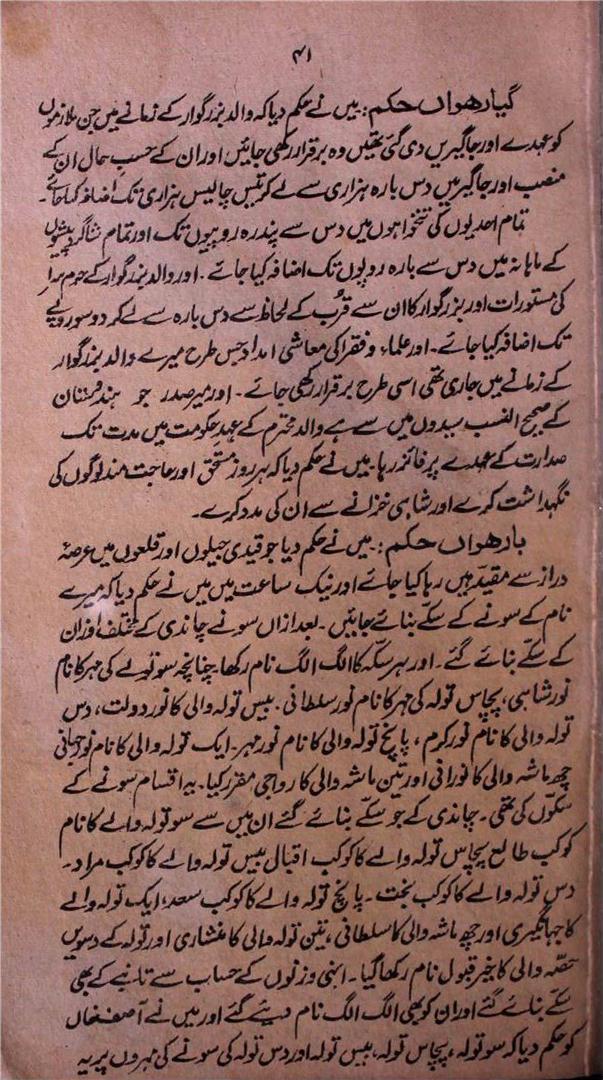 ۴۱
گیارھواں حکم:۔ میں نے حکم دیا کہ والد بزرگوار کے زمانے میں جن ملازموں
کو عہدے اور جاگیریں دی گئی تھیں وہ برقرار رکھی جائیں اور ان کے حسبِ حال ان کے
منصب اور جاگیر میں دس بارہ ہزاری سے لے کر تیس چالیس ہزاری تک اضافہ کیا جائے۔
تمام احدیوں کی تنخواہوں میں دس سے پندرہ روپیوں تک اور تمام شاگرد پیشوں
کے ماہانہ میں دس سے بارہ روپوں تک اضافہ کیا جائے۔ اور والد بزرگوار کے حرم سرا
کی مستورات اور بزرگوار کا ان سے قرب کے لحاظ سے دس بارہ سے لے کر دو سو روپے
تک اضافہ کیا جائے۔ اور علماء و فقرا کی معاشی امداد جس طرح میرے والد بزرگوار
کے زمانے میں جاری تھی اسی طرح برقرار رکھی جائے۔ اور میر صدر جو ہندوستان
کے صحیح النسب سیدوں میں سے ہے والد محترم کے عہد حکومت میں مدت تک
صدارت کے عہدے پر فائز رہا۔ میں نے حکم دیا کہ ہر روز مستحق اور حاجت مند لوگوں کی
نگہداشت کرے اور شاہی خزانے سے ان کی مدد کرے۔
بارھواں حکم:۔ میں نے حکم دیا جو قیدی جیلوں اور قلعوں میں عرصۂ
دراز سے مقید ہیں رہا کیا جائے اور نیک ساعت میں میں نے حکم دیا کہ میرے
نام کے سونے کے سکے بنائے جائیں۔ بعد ازاں سونے چاندی کے مختلف اوزان
کے سکے بنائے گئے۔ اور ہر سکہ کا الگ الگ نام رکھا۔ چنانچہ سو تولے کی مہر کا نام
نور شاہی، پچاس تولہ کی مہر کا نام نور سلطانی۔ بیس تولہ والی کا نور دولت، دس
تولہ والی کا نام نور کرم، پانچ تولہ والی کا نام نور مہر۔ ایک تولہ والی کا نام نور جہانی
چھ ماشہ والی کا نورانی اور تین ماشہ والی کا رواجی مقرر کیا۔ یہ اقسام سونے کے
سکوں کی تھی۔ چاندی کے جو سکے بنائے گئے ان میں سے سو تولہ والے کا نام
کوکب طالع پچاس تولہ والے کا کوکب اقبال بیس تولہ والے کا کوکب مراد۔
دس تولہ والے کا کوکب بخت۔ پانچ تولہ والے کا کوکب سعد، ایک تولہ والے
کا جہانگیری اور چھ ماشہ والی کا سلطانی، تین تولہ والی کا نشاری اور تولہ کے دسویں
حصہ والی کا خیر قبول نام رکھا گیا۔ اپنی وزنوں کے حساب سے تانبے کے بھی
سکے بنائے گئے اور ان کو بھی الگ الگ نام دیئے گئے اور میں نے آصف خاں
کو حکم دیا کہ سو تولہ، پچاس تولہ، بیس تولہ اور دس تولہ کی سونے کی مہروں پر یہ